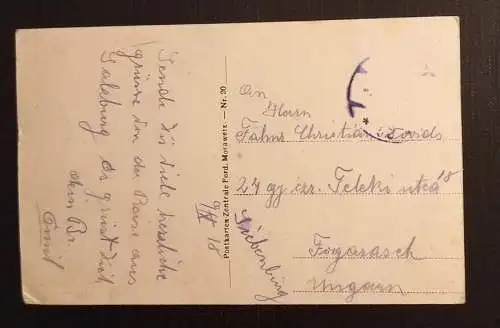 Sende dir viele herzliche
grüsse von der Reise aus
Salzburg es grüsst dich
dein Br.
Emil
9/X 18
Postkarten-Zentrale Ferd. Morawetz. — Nr. 30
An
Herrn
Fahns Christian
24 gy. ezr. Teleki utca 18
Fogarasch
Siebenbürg
Ungarn